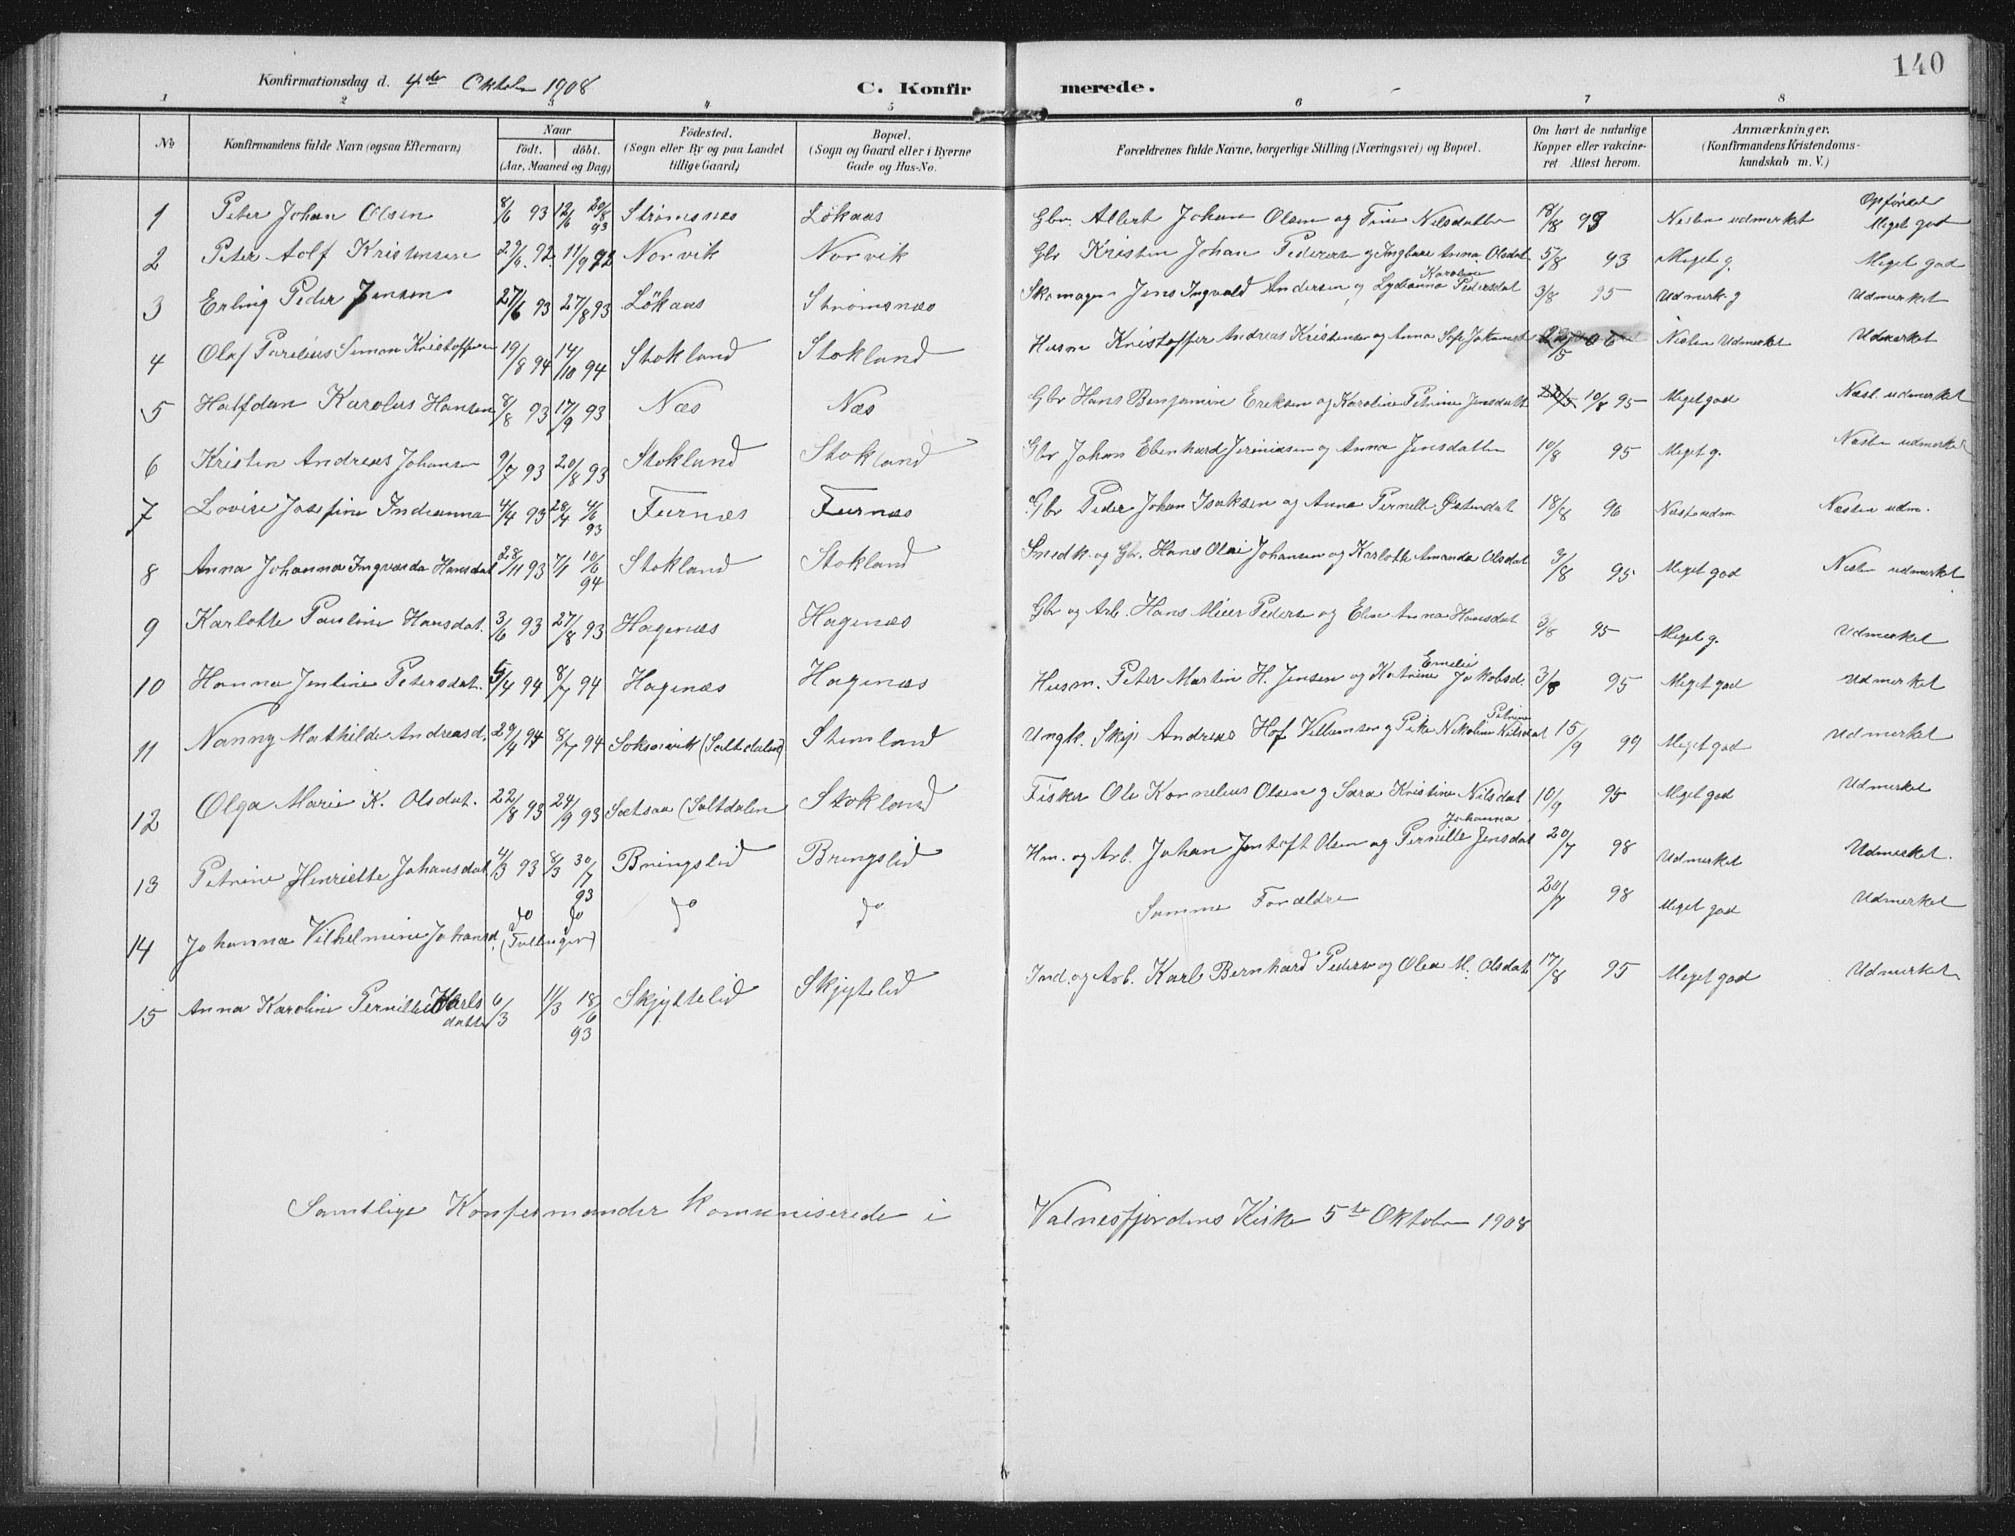 140
Konfirmationsdag d. 4de Oktober 1908 C. Konfirmerede.
1 2 3 4 5 6 7 8
No Konfirmandens fulde Navn (ogsaa Efternavn) Naar født. døbt. (Aar, Maaned og Dag) Fødested. (Sogn eller By og paa Landet tillige Gaard) Bopæl. (Sogn og Gaard eller i Byerne Gade og Hus-No. Forældrenes fulde Navne, borgerlige Stilling (Næringsvei) og Bopæl. Om havt de naturlige Kopper eller vakcineret Attest herom. Anmærkninger. (Konfirmandens Kristendomskundskab m. V.)
Opførsel
1 Peter Johan Olsen 8/6 93 12/6 20/8 93 Strømsnæs Løkaas Gbr. Albert Johan Olsen og Nilsdatter 18/8 93 Næsten udmerket Meget god
2 Peter Adolf Kristensen 29/ 92. 11/9 92 Norvik Norvik Gbr Kristen Johan Pedersen og Anna Olsdat 5/8 93 Meget g. Meget god
3 Erling Peder Jensen 27/6 93 27/8 93 Løkaas Strømsnæs Skomager Jens Ingvald Andersen og Lydianna Karoline Pedersdat 3/8 95 Udmerk. g Udmerket
4 Olaf Parelius Simon Kristoffersen 19/8 94 14/10 94 Stokland Stokland Husm Kristoffer Andreas Kristensen og Anna Sof. Johansd 22/5 Næsten Udmerket Udmerket
5 Halfdan Karolus Hansen 8/8 93 17/9 93 Næs Næs Gbr Hans Benjamin Eriksen og Karoline Petrine Jensdatt 10/8 95 Meget god Næst. udmerket
6 Kristen Andreas Johansen 9/7 93 20/8 93 Stokland Stokland Gbr Johan Ebenhard Jeremiasen og Anna Jensdatter 10/8 95 Meget g. Næsten udmerket
7 Lovise Josefine Indianna 4/4 93 28/4 4/6 93 Furnæs Furnæs Gbr Peder Johan Isaksen og Anna Pernelle Østensdat 18/8 96 Næsten udm Næsten udm.
8 Anna Johanna Ingvarda Hansdat 28/11 93 7/1 10/6 94 Stokland Stokland Smedk. og Gbr. Hans Olai Johansen og Karlotte Amanda Olsdat 9/8 95 Meget god Næsten udmerket
9 Karlotte Pauline Hansdat. 3/6 93 27/8 93 Hagenæs Hagenæs Gbr og Arb. Hans Meier Pedersen og Elen Anna Hansdat 3/8 95 Meget g. Udmerket
10 Hanna Jentine Petersdat. 5/4 94 8/7 94 Hagenæs Hagenæs Husm. Peter Martin H. Jensen og Katrine Emelie Jakobsd. 3/8 95 Meget god Udmerket
11 Nanny Mathilde Andreasd. 29/4 94 8/7 94 Saksenvik (Saltdalen) Stemland Ungk. Skip Andreas Hof Villumsen og Petra Nikoline Petrine Nilsdat 15/9 99 Meget god Udmerket
12 Olga Marie K. Olsdat. 22/8 93 24/9 93 Sætsaa (Saltdalen Stokland Fisker Ole Kornelius Olsen og Sara Kristine Nilsdat 10/9 95 Meget god Udmerket
13 Petrine Henriette Johansdat 4/3 93 8/3 30/7 93 Bringslid Bringslid Hm. og Arb. Johan Jentoft Olsen og Pernille Johanna Jensdat 20/7 98 Udmerket Udmerket.
14 Johanna Vilhelmine Johansd. do do (Tvillinger) do do Samme Forældre 20/7 98 Meget god Udmerket
15 Anna Karoline Pernille Karlsdatter 6/3 11/3 18/6 93 Skjyttelid Skjytelid Ind. og Arb. Karl Bernhard Pedersen og Olea M. Olsdat 17/8 95 Meget god Udmerket
Samtlige Konfermander komuniserede i Valnesfjordens Kirke 5te Oktober 1908